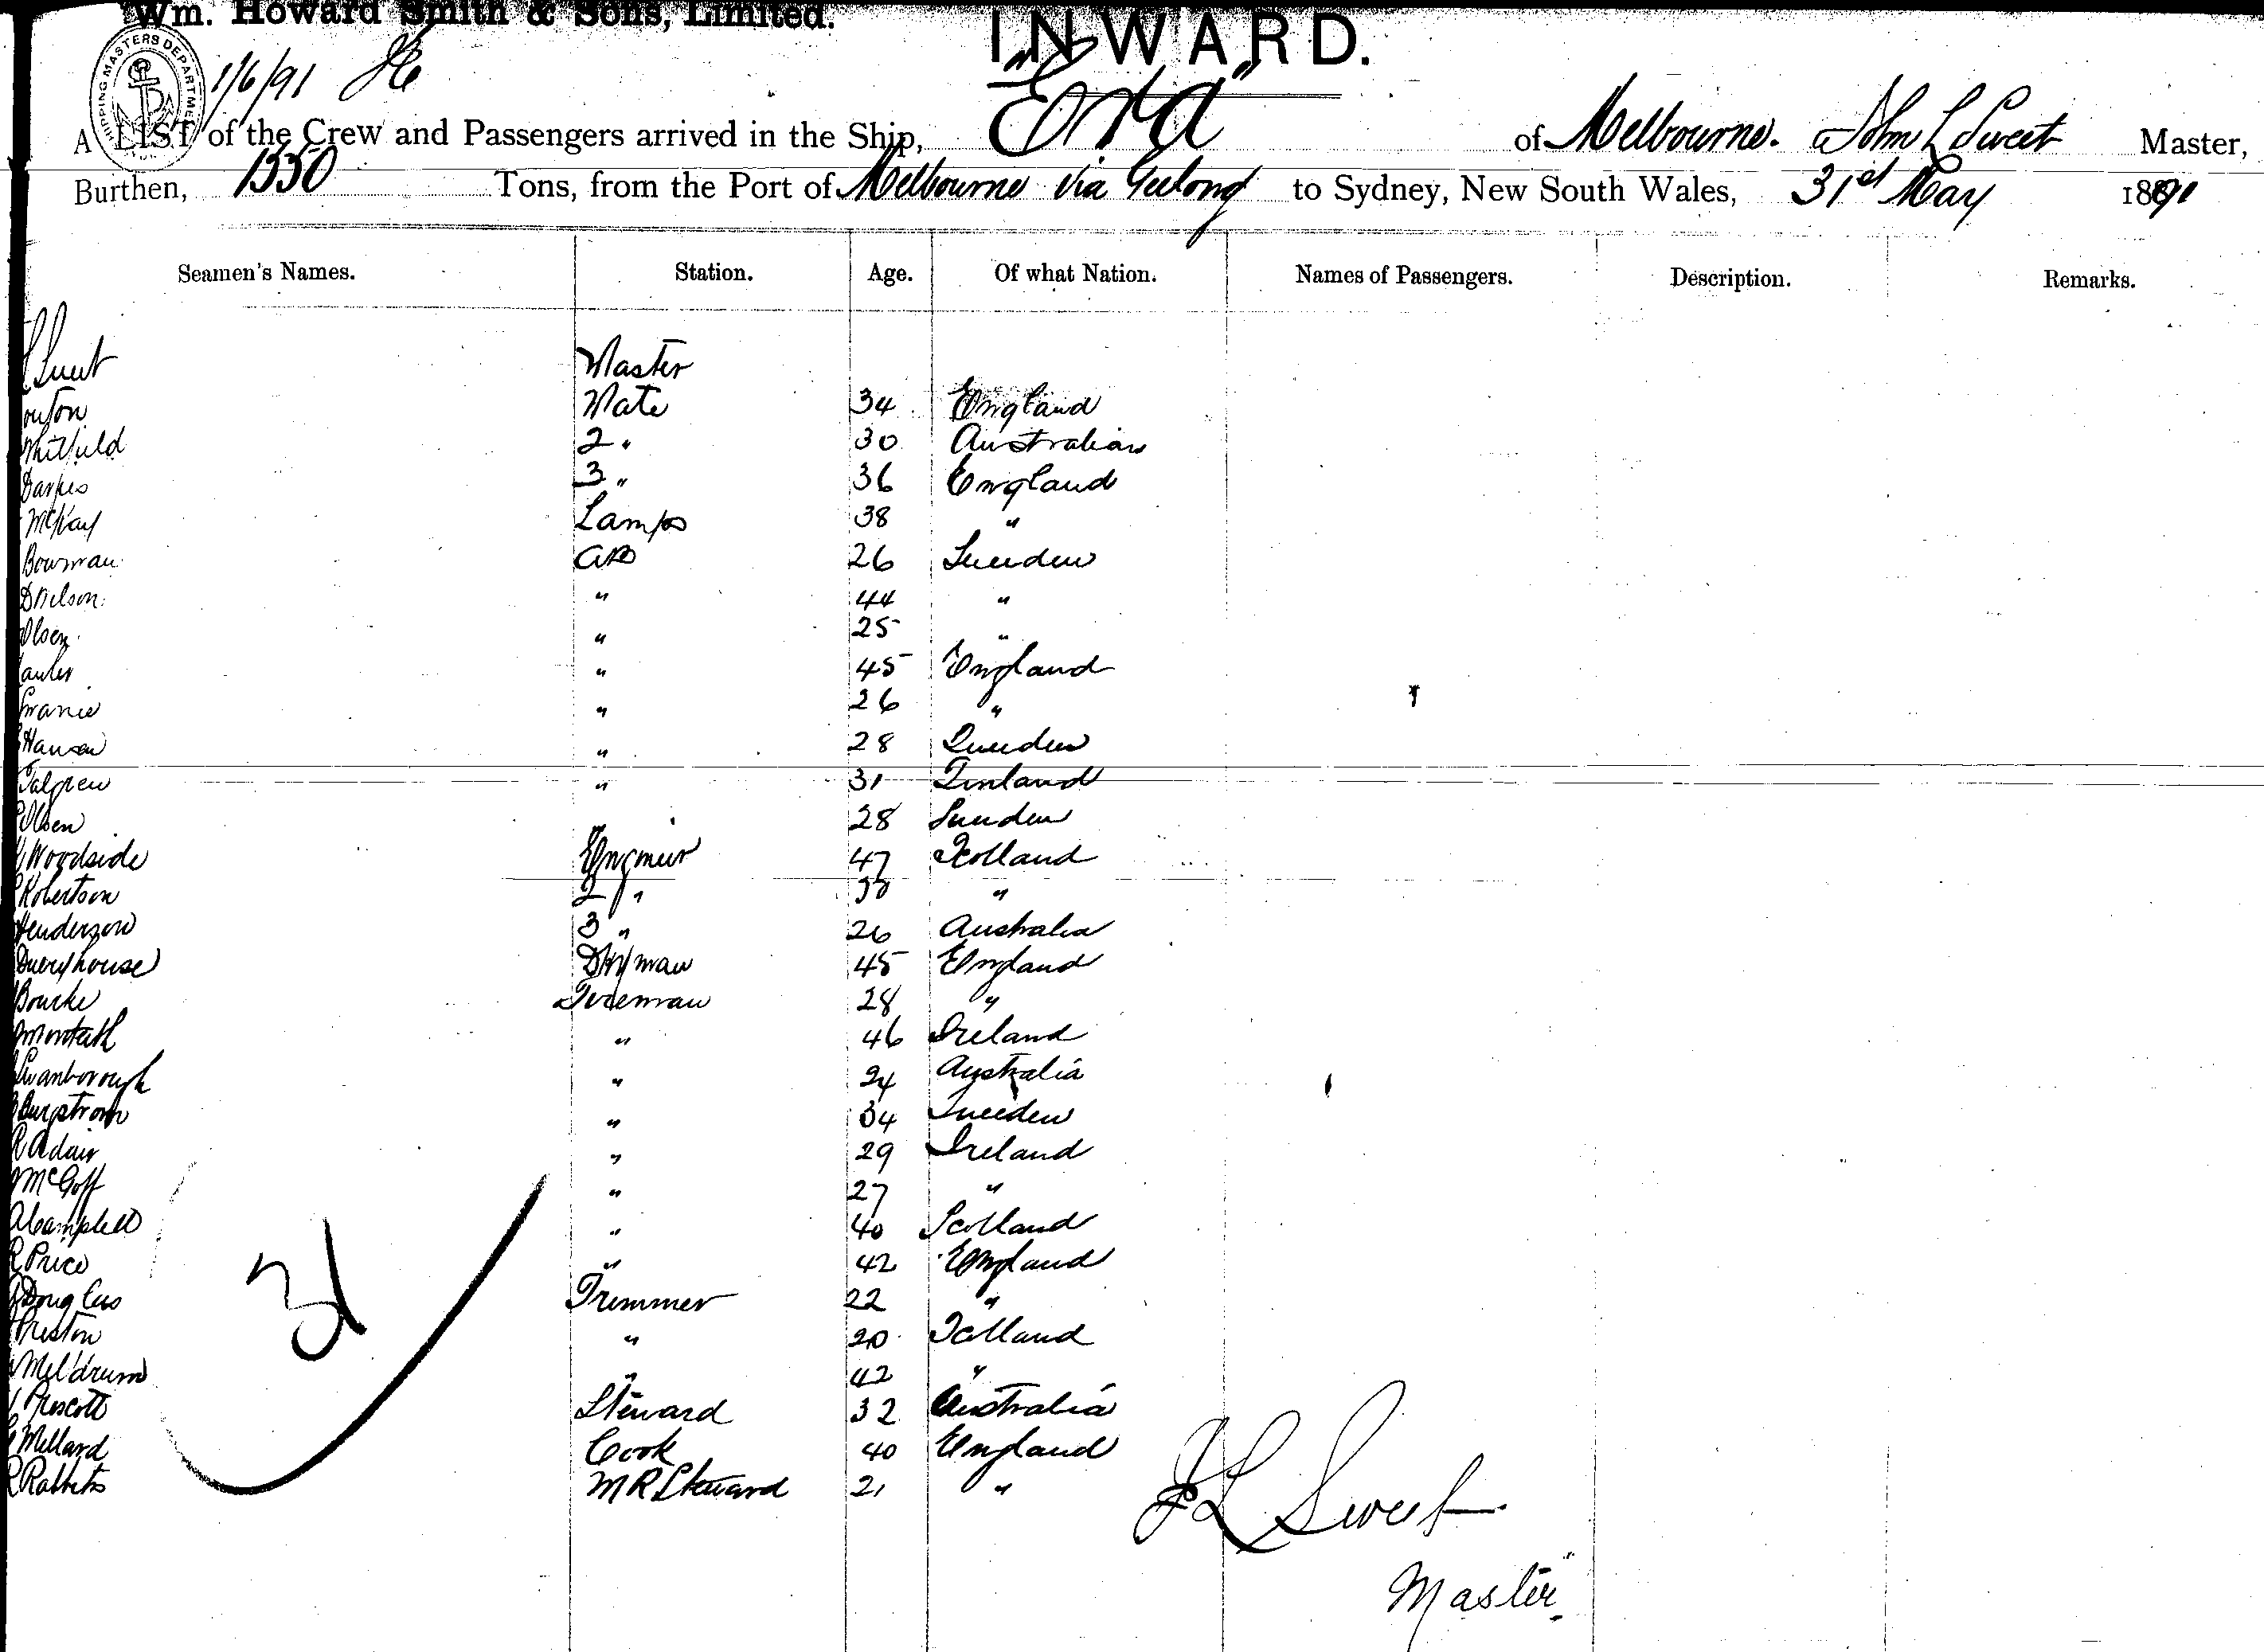 Wm. Howard Smith & Sons, Limited.
INWARD.
SHIPPING MASTERS DEPARTMENT
1/6/91
A LIST of the Crew and Passengers arrived in the Ship, "Era" of Melbourne. John L Sweet Master,
Burthen, 1550 Tons, from the Port of Melbourne via Geelong to Sydney, New South Wales, 31st May 1891
Seamen's Names. Station. Age. Of what Nation. Names of Passengers. Description. Remarks.
Sweet Master
Mate 34 England
Whitfield 2 " 30 Australian
3 " 36 England
McKay Lamps 38 "
Bowman AB 26 Sweeden
Nelson " 44 "
Olsen " 25 "
" 45 England
" 26 "
Hansen " 28 Sweeden
" 31 Finland
Olsen " 28 Sweeden
Woodside Engineer 47 Scotland
Robertson 2 " 38 "
Henderson 3 " 26 Australia
Dkyman 45 England
Bourke Fireman 28 "
Monteith " 46 Ireland
Swanborough " 24 Australia
Burgstrom " 34 Sweeden
R Adair " 29 Ireland
McGoff " 27 "
A Campbell " 40 Scotland
R Price " 42 England
Douglas Trimmer 22 "
Preston " 20 Scotland
Meldrum " 42 "
Prescott Steward 32 Australia
Millard Cook 40 England
R Rabbits MR Steward 21 "
31
JL Sweet
Master